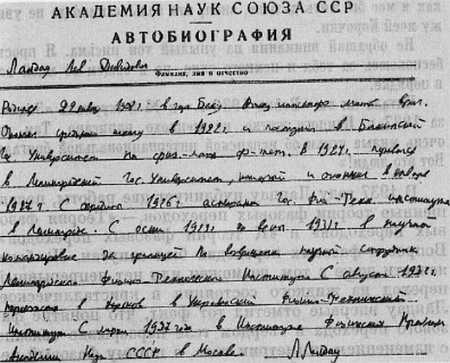 АКАДЕМИЯ НАУК СОЮЗА ССР
АВТОБИОГРАФИЯ
Ландау Лев Давидович
Фамилия, имя и отчество
Родился 22 янв. 1908 г. в гор. Баку. Отец инженер мать врач.
Окончил среднюю школу в 1922 г и поступил в Бакинский
Гос Университет на физ-мат ф-тет. В 1924 г. перевелся
в Ленинградский Гос. Университет, который и окончил в январе
1927 г. С 1926 г аспирант Гос. Физ-Техн. института
в Ленинграде. С осени 1929 г по весну 1931 г в научной
командировке за границей По возвращении научный сотрудник
Ленинградского Физико-Технического Института С августа 1932 г.
в Харьков в Украинский Физико-Технический
Институт С марта 1937 года в Институте Физических Проблем
Академии Наук СССР в Москве. Л.Ландау